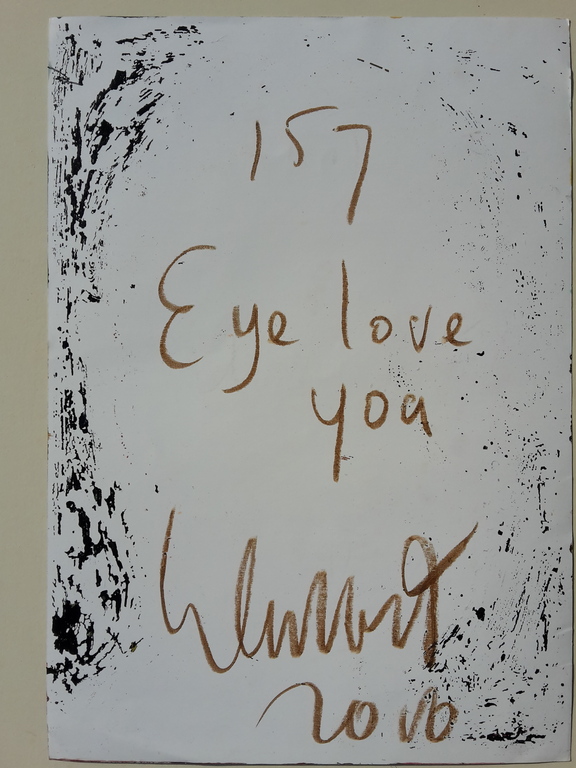 157
Eye love
yoa
2010